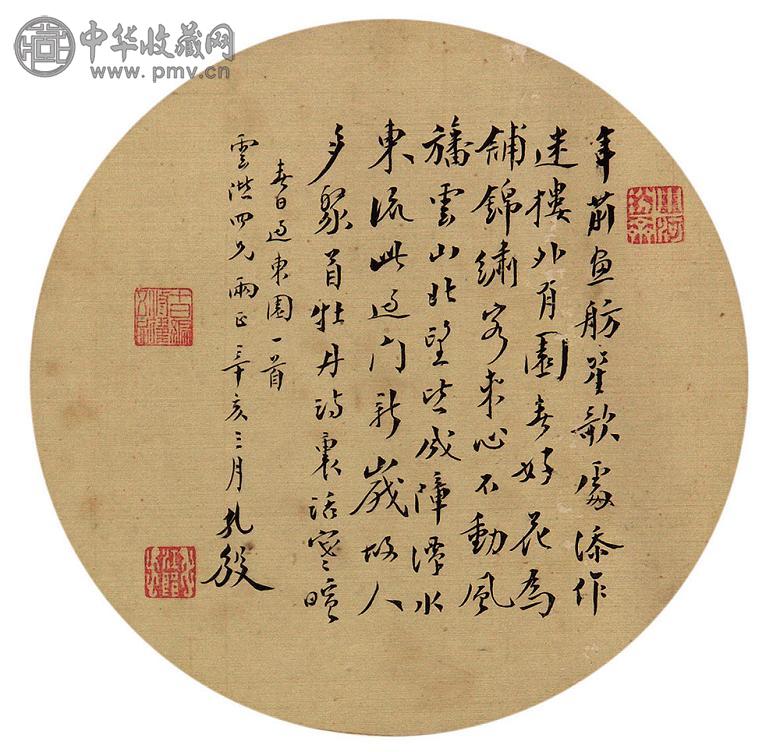 中华收藏网
www.pmv.cn
年前画舫笙歌处添作
迷楼外有园春好花为
铺锦绣客来心不动风
旛云山北望皆成障潭水
东流此过门新岁故人
多聚首牡丹诗里话寒暄
春日过东园一首
雲洪四兄两正辛亥三月